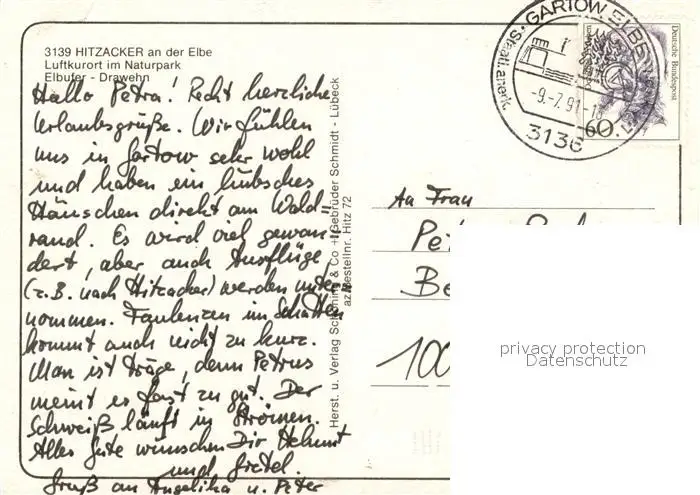 3139 HITZACKER an der Elbe
Luftkurort im Naturpark
Elbufer - Drawehn
Hallo Petra! Recht herzliche
Urlaubsgrüße. Wir fühlen
uns in Gartow sehr wohl
und haben ein hübsches
Häuschen direkt am Wald=
rand. Es wird viel gewan-
dert, aber auch Ausflüge
(z.B. nach Hitzacker) werden unter
nommen. Faulenzen im Schatten
kommt auch nicht zu kurz.
Man ist träge, denn Petrus
meint es fast zu gut. Der
Schweiß läuft in Strömen.
Alles Gute wünschen Dir Helmut
und Gretel.
Gruß an Angelika u. Peter
Herst. u. Verlag Schöning & Co + Gebrüder Schmidt - Lübeck
az Bestellnr. Hitz 72
GARTOW
-9.-7.91-
3136
Deutsche Bundespost
60
An Frau
Pe
Be
100
privacy protection
Datenschutz